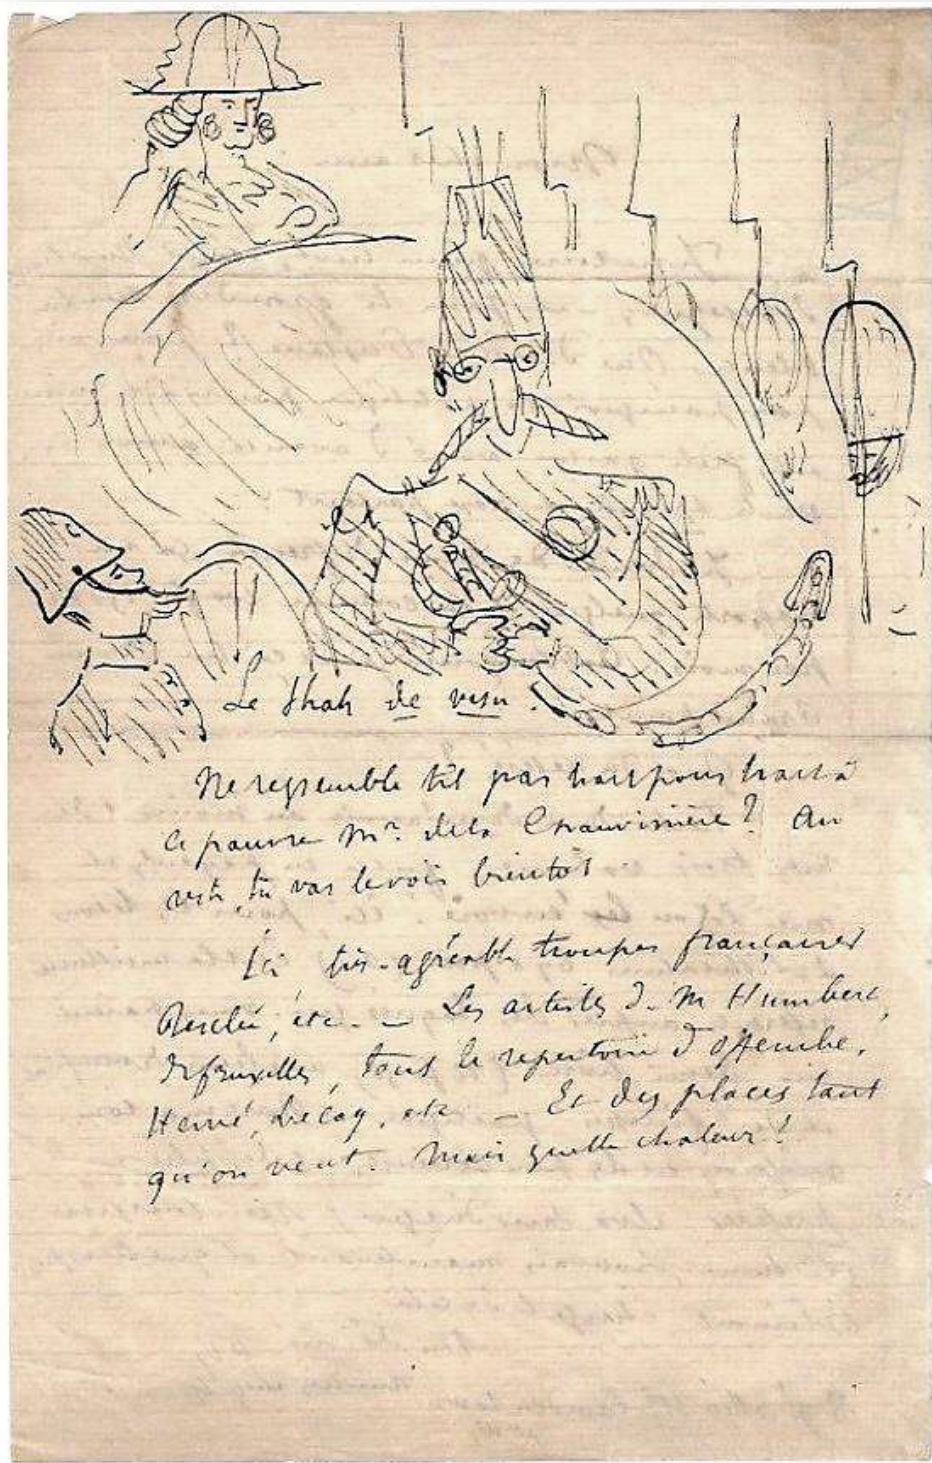 Le Shah de visu.
Ne ressemble til pas trait pour trait à
ce pauvre Mr. dela Chauvinière? Au
reste, tu vas le voir bientôt
Ici très-agréable troupes françaises
Desclée, etc. — Les artistes d. M Humbert,
de Bruxelles, tout le repertoire d'Offenbc,
Hervé, Lecoq, etc — Et des places tant
qu'on veut. Mais quelle chaleur!